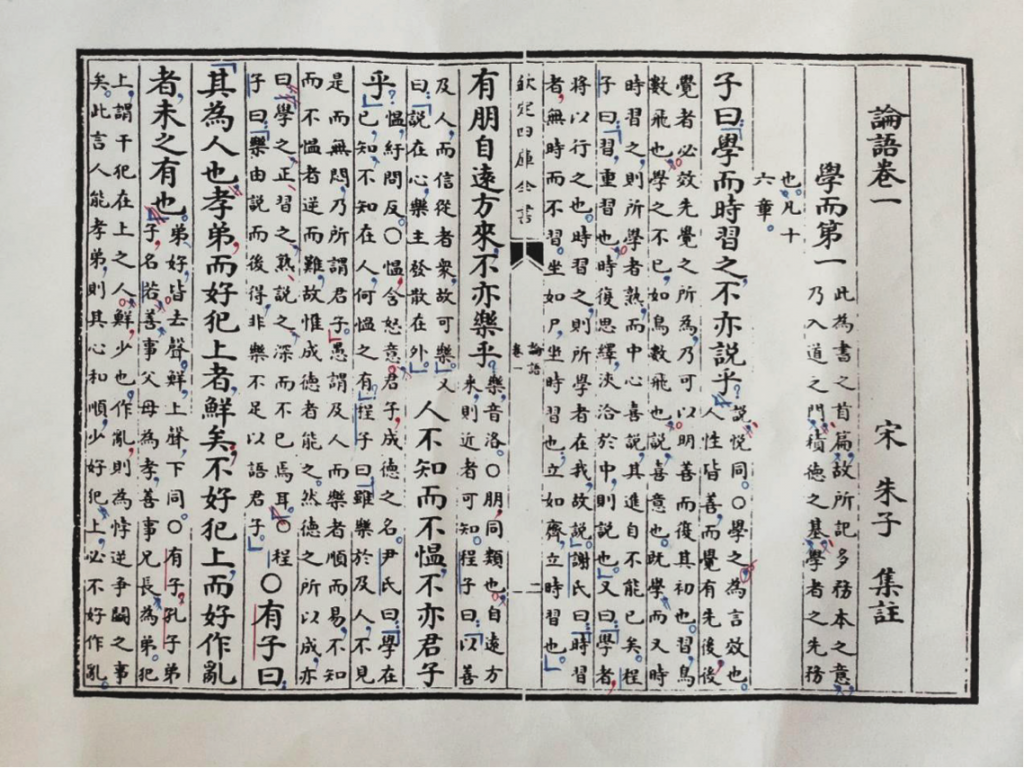 論語卷一
宋 朱子 集註
學而第一
此為書之首篇故所記多務本之意
乃入道之門積德之基學者之先務
也凡十
六章
子曰學而時習之不亦說乎
說悅同○學之為言效也
人性皆善而覺有先後後
覺者必效先覺之所為乃可以明善而復其初也習鳥
數飛也學之不已如鳥數飛也說喜意也既學而又時
時習之則所學者熟而中心喜說其進自不能已矣程
子曰習重習也時復思繹浹洽於中則說也又曰學者
將以行之也時習之則所學者在我故說謝氏曰時習
者無時而不習坐如尸坐時習也立如齊立時習也
欽定四庫全書
論語
卷一
二
有朋自遠方來不亦樂乎
樂音洛○朋同類也自遠方
來則近者可知程子曰以善
及人而信從者衆故可樂又
曰說在心樂主發散在外
人不知而不慍不亦君子
乎
慍紆問反○慍含怒意君子成德之名尹氏曰學在
已知不知在人何慍之有程子曰雖樂於及人不見
是而無悶乃所謂君子愚謂及人而樂者順而易不知
而不慍者逆而難故惟成德者能之然德之所以成亦
曰學之正習之熟說之深而不已焉耳○程
子曰樂由說而後得非樂不足以語君子
○有子曰
其為人也孝弟而好犯上者鮮矣不好犯上而好作亂
者未之有也
弟好皆去聲鮮上聲下同○有子孔子弟
子名若善事父母為孝善事兄長為弟犯
上謂干犯在上之人鮮少也作亂則為悖逆爭鬭之事
矣此言人能孝弟則其心和順少好犯上必不好作亂